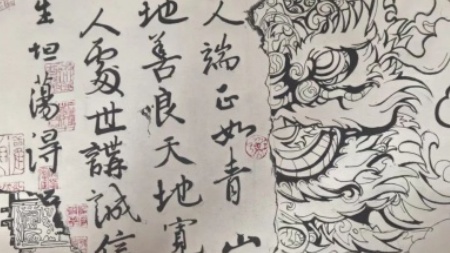 人端正如青山
地善良天地寬
人處世講誠信
生坦蕩得